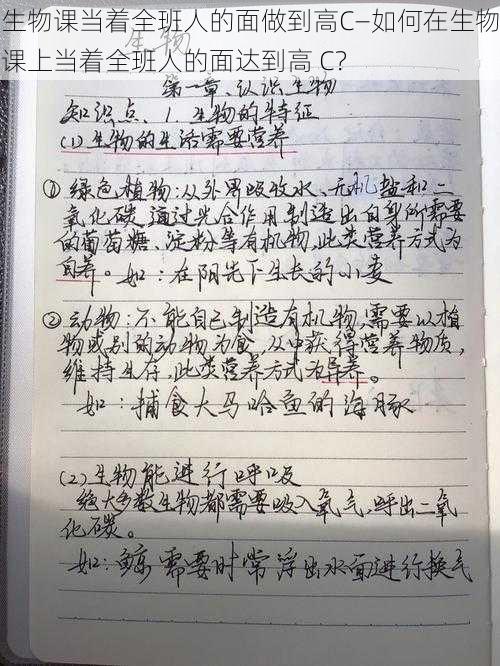 生物课当着全班人的面做到高C—如何在生物
课上当着全班人的面达到高 C?
生物
第一章、认识生物
知识点、1.生物的特征
(1)生物的生活需要营养
①绿色植物:从外界吸收水、无机盐和二
氧化碳,通过光合作用制造出自身所需要
的葡萄糖、淀粉等有机物,此类营养方式为
自养。如:在阳光下生长的小麦
②动物:不能自己制造有机物,需要以植
物或别的动物为食,从中获得营养物质,
维持生存,此类营养方式为异养。
如:捕食大马哈鱼的海豚
(2)生物能进行呼吸
绝大多数生物都需要吸入氧气,呼出二氧
化碳。
如:鲸需要时常浮出水面进行换气